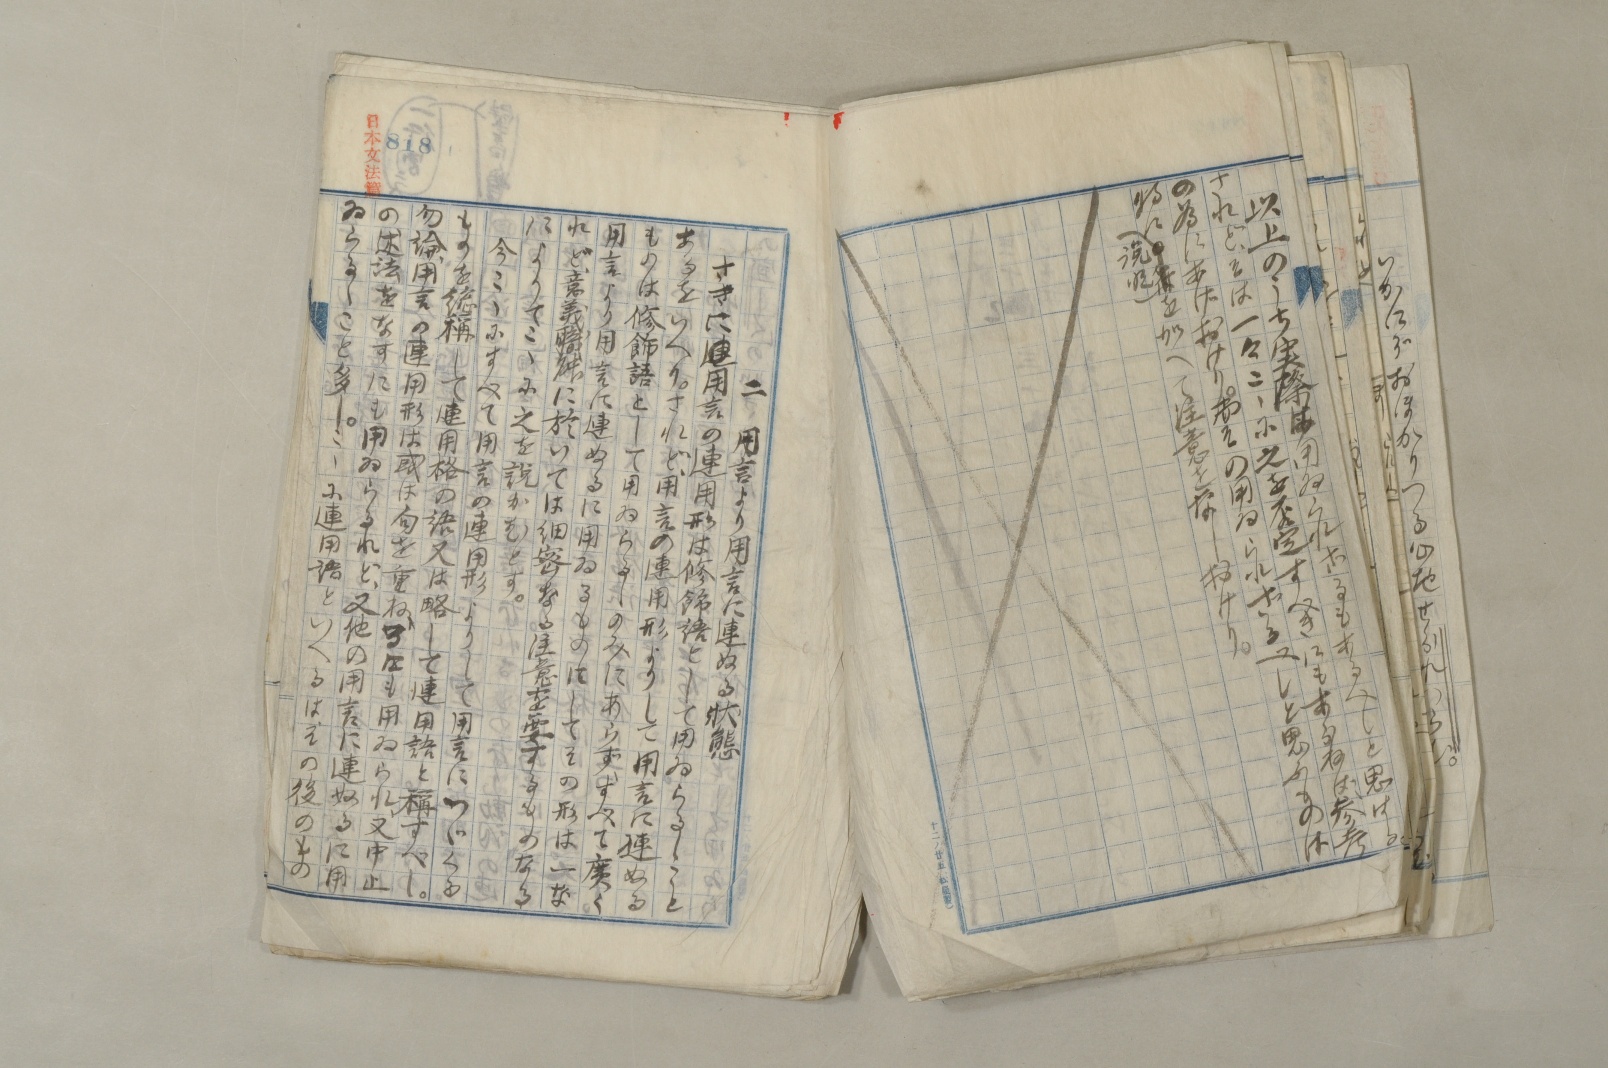 いかにぞおぼかりつる心地せられ
以上のうち実際は用ゐられざるもあるべしと思はる
されど、そは一々こゝに之を否定すべきにもあらねば参考
の為にあげおけり。而その用ゐられざるべしと思ふものは
特にの符を加へて注意をなしおけり。
(説明)
日本文法論
818
二 用言より用言に連ぬる状態
さきに連用言の連用形は修飾語として用ゐらるゝこと
あるをいへり。されど、用言の連用形よりして用言に連ぬる
ものは修飾語として用ゐらるゝのみにあらず、すべて広く
用言より用言に連ぬるに用ゐるものにしてその形は一な
れど、意義職能に於いては細密なる注意を要するものなる
によりてこゝに之を説かむとす。
今こゝにすべて用言の連用形よりして用言につゞくる
ものを総称して連用格の語又は略して連用語と称すべし。
勿論、用言の連用形は或は句を重ねるにも用ゐられ又中止
の述法をなすにも用ゐらるれど、又他の用言に連ぬるに用
ゐらるゝこと多し。こゝに連用語といへるはその後のもの